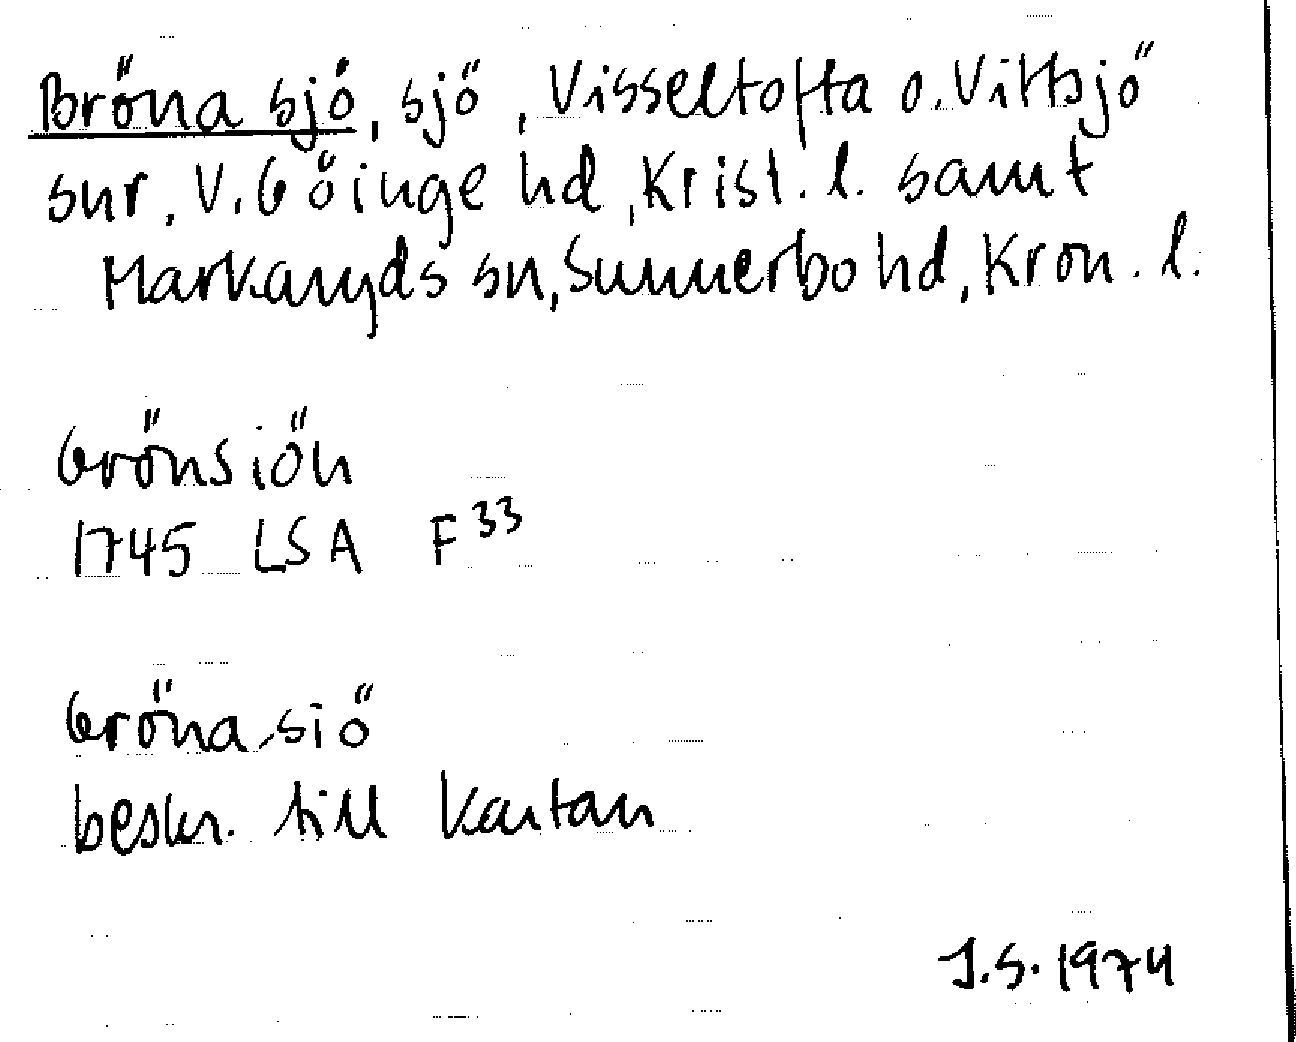 Bröna sjö, sjö, Visseltofta o. Vittsjö
snr, V. Göinge hd, Krist. l. samt
Markaryds sn, Sunnerbo hd, Kron. l.
Grönsiön
1745 LSA F 33
Gröna siö
beskr. till kartan
J.S. 1974